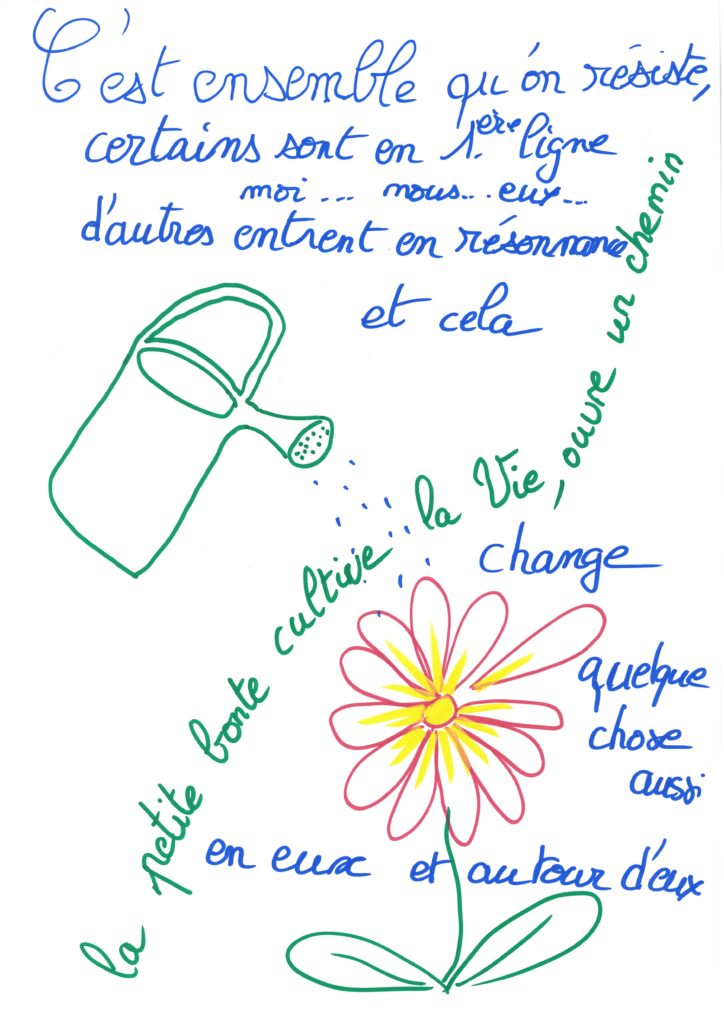 C'est ensemble qu'on résiste,
certains sont en 1.ère ligne
moi... nous... eux...
d'autres entrent en résonnance
et cela
change
quelque
chose
aussi
en eux et autour d'eux
la petite bonte cultive la Vie, ouvre un chemin